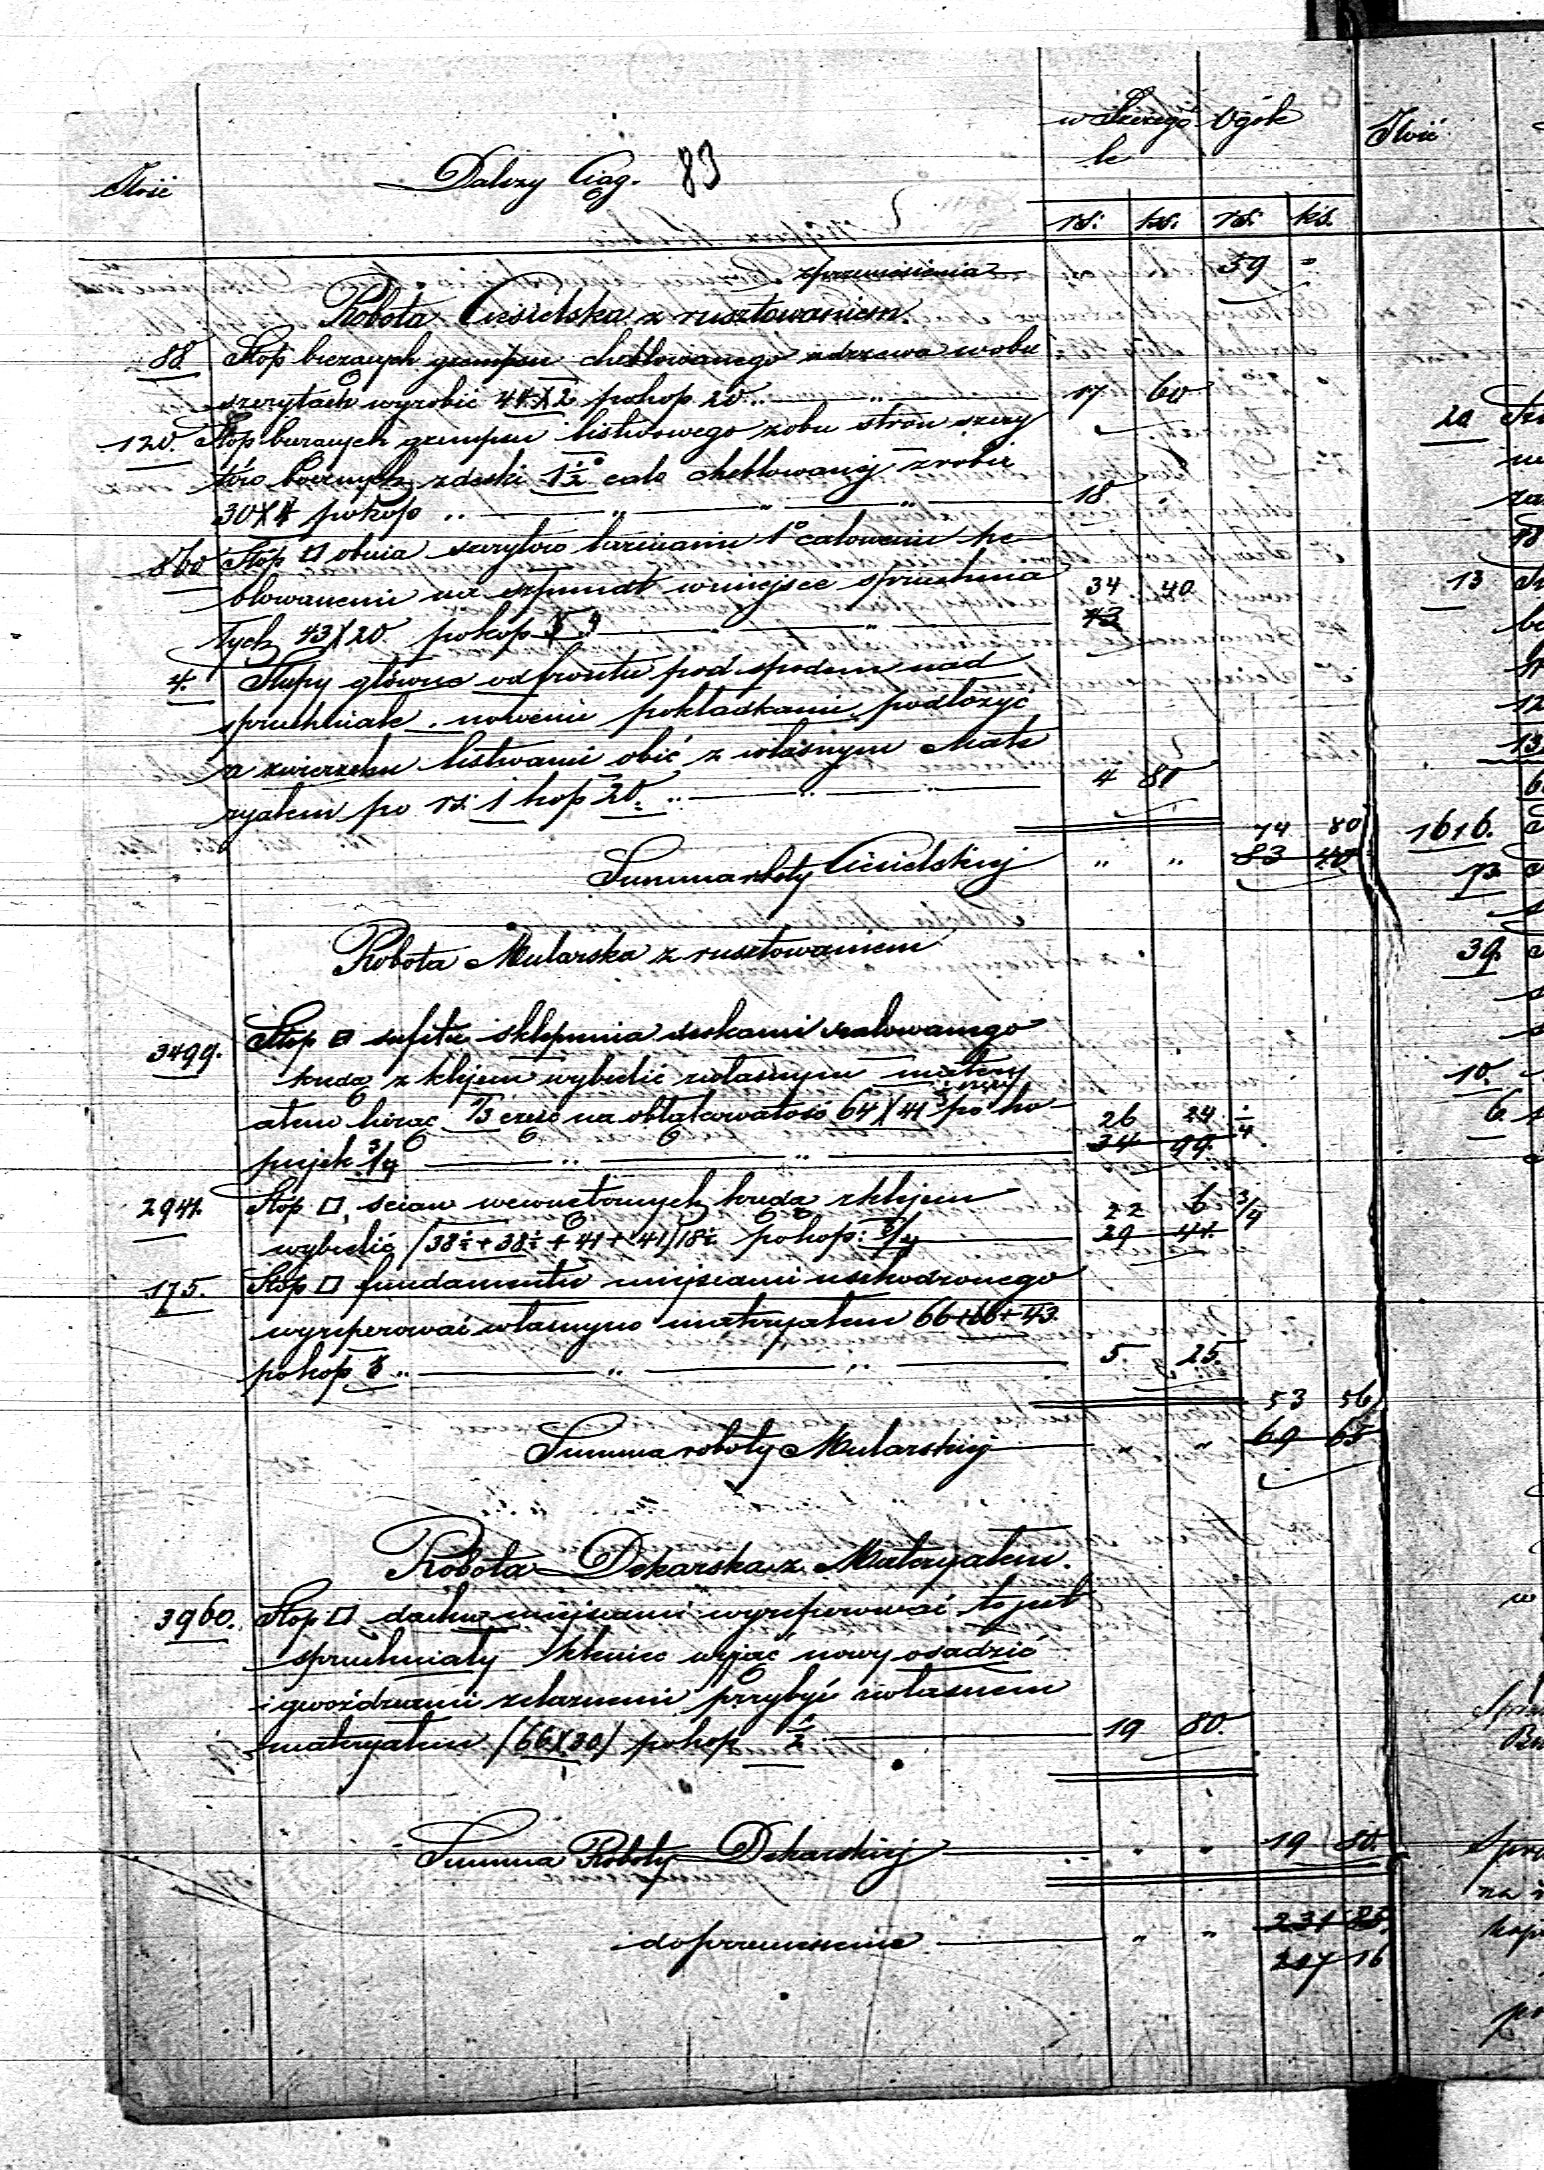 w Szczegó Ogóle
le
Ilość Dalszy Ciąg. 83
rs: ks. rs: ks.
z przeniesienia 59 "
Robota Ciesielska z rusztowaniem.
88 Stóp bieżących gzempsu cheblowanego z drzewa w obu
szczytach wyrobić 44X2 po kop 20 .. " 17 60
120. Stóp bieżących gzempsu listwowego z obu stron szczy
tów bocznych z deski 1½ calo cheblowanej zrobić
30X4 po kop .. " " " 18 .
860 Stóp □ obicia szczytów 1° calowemi he
blowanemi na szpundt w miejsce spruchnia
34 40
łych 43X20 po kop 5 4 " " 43
4. Słupy główne od frontu pod spodem nad
spruchniałe nowemi pokładkami podłożyć
a z wierzchu listwami obić z własnym Mate
ryałem po rs: 1 kop 20. .. " " 4 80
74 80
Summa roboty Ciesielskiej " " 83 40
Robota Mularska z rusztowaniem
3499. Stóp □ sufitu sklepienia deskami szalowanego
kredą z klejem wybielić z własnym matery
ałem biorąc 1/3 część na obłąkowatość 64X41 po ko 26 24 ¼
piejek ¾ .. " 34 99.
2941. Stóp □ ścian wewnętrznych kredą z klejem 22 6 ¾
wybielić (38½+38½+41+41)18½ po kop: ¾ 29 41.
175. Stóp □ fundamentu miejscami uszkodzonego
wyreperować własnym materyałem 66+66+43.
po kop 3 .. " " 5. 25.
53 56
Summa roboty Mularskiej " " 69 65
Robota Dekarska z Materyałem.
3960. Stóp □ dachu miejscami wyreperować to jest
spruchniały wyjąć nowy osadzić
i gwoździami żelaznemi przybyć z własnem
materyałem (66X30) po kop ½ 19 80.
Summa Roboty Dekarskiej .. " " 19 80.
do przeniesienia " " 231 85
207 16